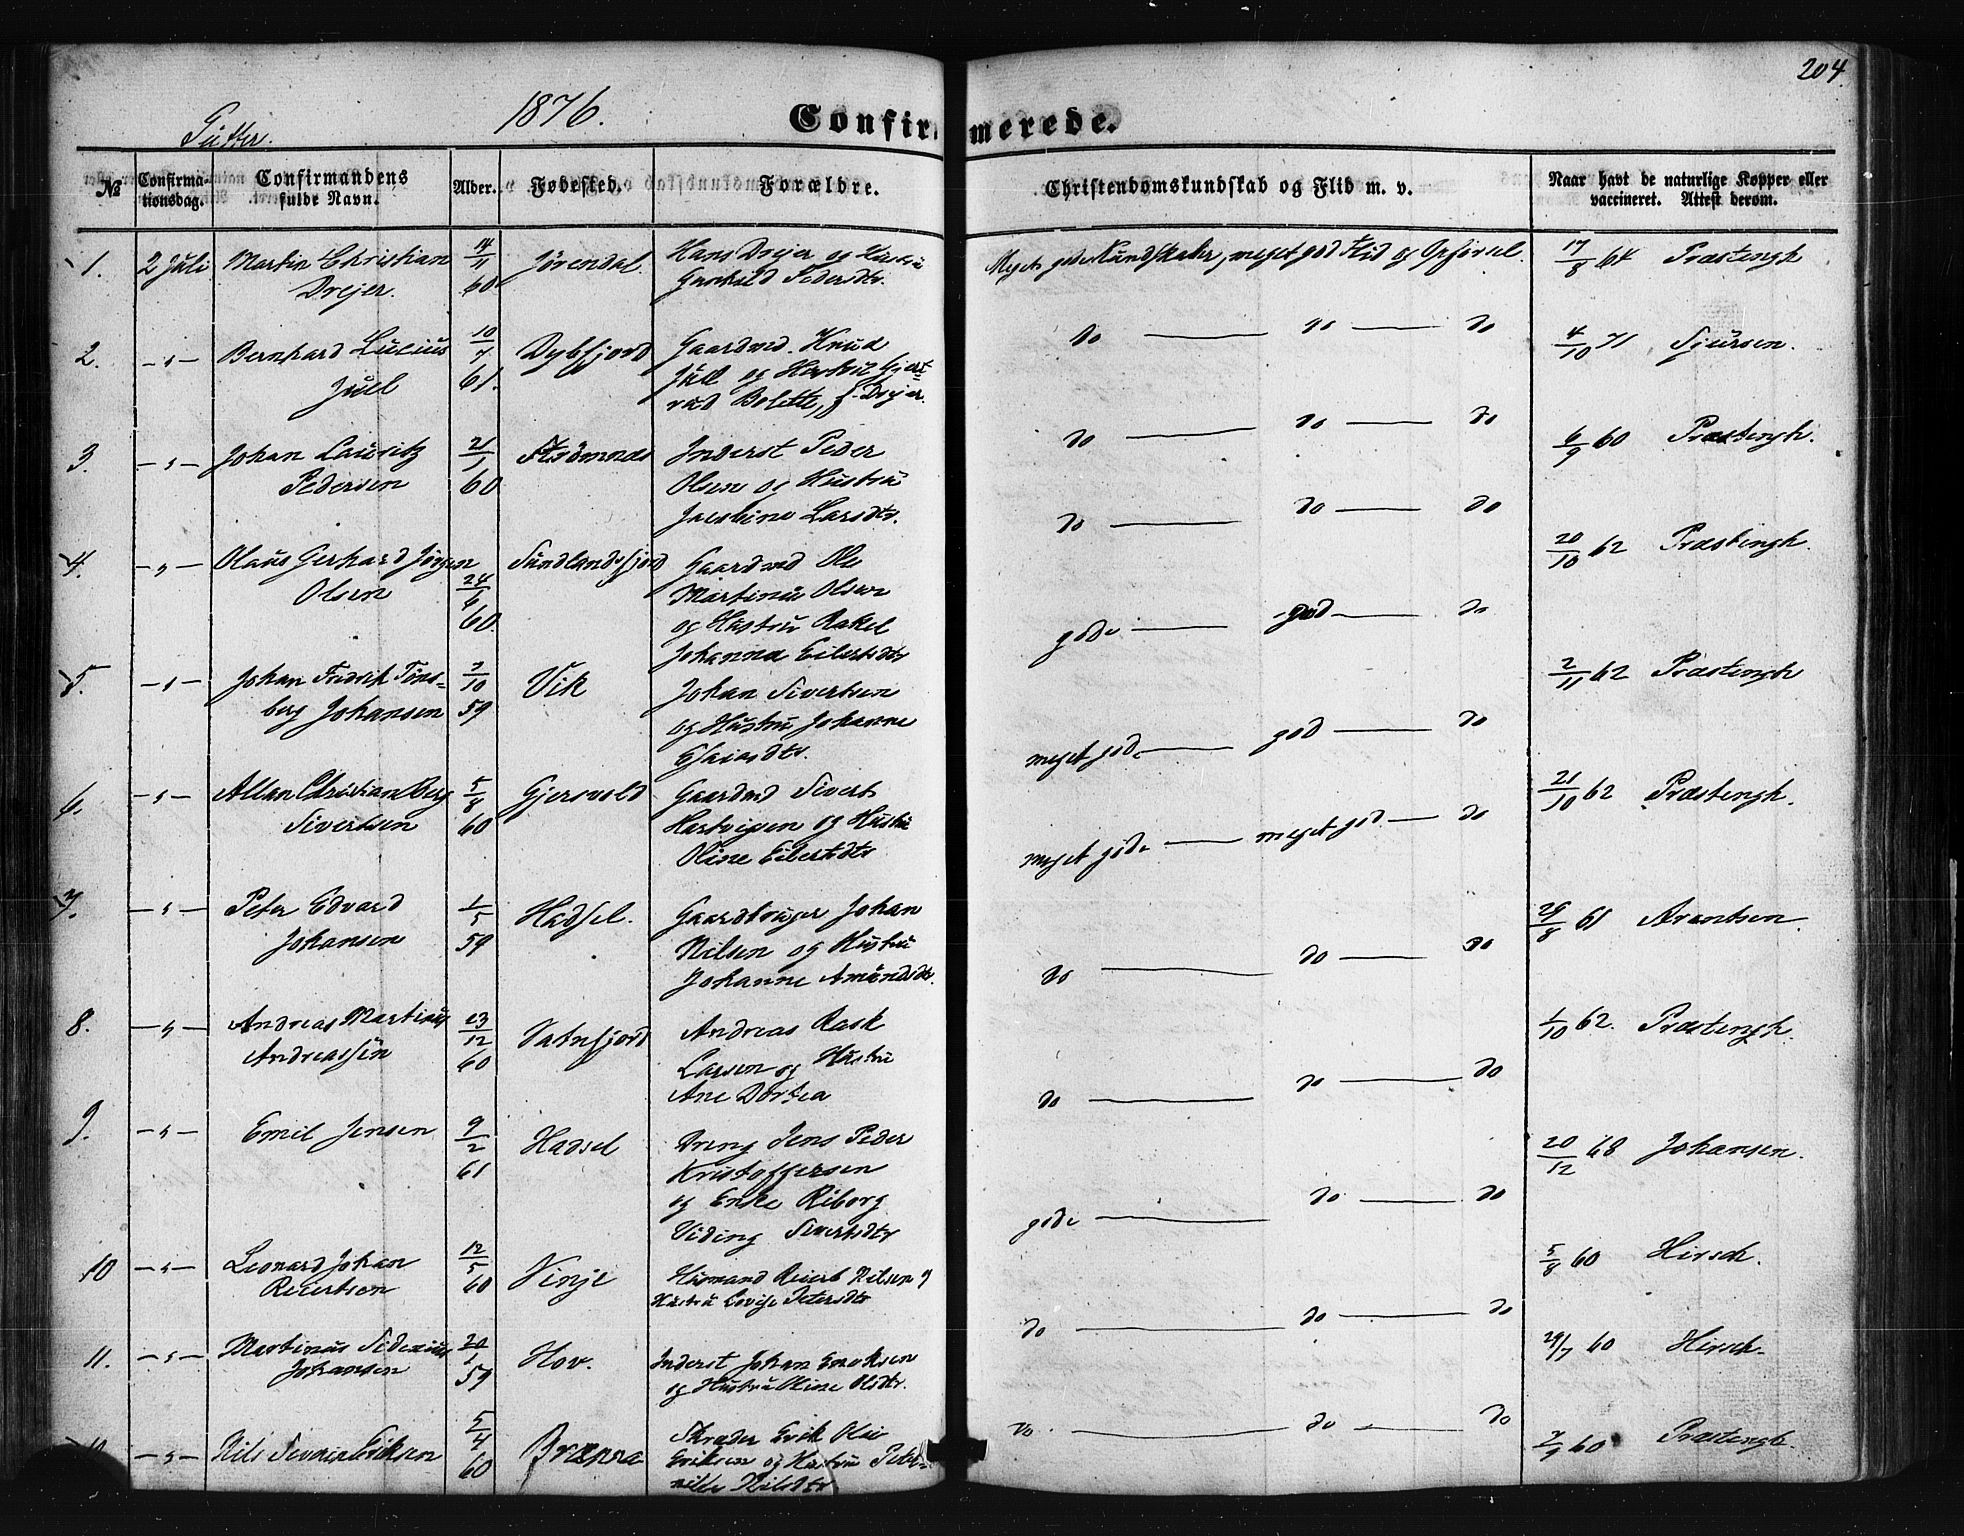 204.
1876.
Confirmerede.
Gutter.
№
Confirmationsdag.
Confirmandens fulde Navn.
Alder.
Fødested.
Forældre.
Christendomskundskab og Flid m. v.
Naar havt de naturlige Kopper eller vaccineret. Attest derom.
1. 2 Juli Martin Christian 14/11 Jørendal. Hans Drejer og Hustru Meget gode Kundskaber, meget god Flid og Opførsel 17/8 64 Præstengh
Drejer. 60 Gunhild Pedersdtr.
2. -"- Bernhard Lucius 10/7 Dybfjord Gaardmd. Knud do do do 4/10 71 Sjursen.
Juel 61. Juel og Hustru Gjert
rud Bolette, f. Drejer.
3. -"- Johan Lauritz 21/1 Inderst Peder do do do 6/9 60 Præstengh.
Pedersen 60 Olsen og Hustru
Jacobine Larsdtr.
4. -"- Olaus Gerhard Jørgen Sundlandsfjord Gaardmd Ole do do do 20/10 62 Præstengh.
Olsen 24/6 Martinus Olsen
60. og Hustru Rakel
Johanna Eilertsdtr
5. -"- Johan Fredrik Tøns- 2/10 Vik Johan Sivertsen gode god do 2/11 62 Præstengh
berg Johansen 59 og Hustru Johanne
Esaiasdtr.
6. -"- Allan Christian Berg 5/8 Gjersvold Gaardmd Sivert meget gode god do 21/10 62 Præstengh.
Sivertsen 60 Hartvigsen og Hustru
Oline Eilertsdtr
7. -"- Peter Edvard 1/5 Hadsel. Gaardbruger Johan meget gode meget god do 29/8 61 Arentsen.
Johansen 59 Nilsen og Hustru
Johanne Amundsdtr.
8. -"- Andreas Martinus 23/12 Vatnfjord Andreas Rask do do do 1/10 62. Præstengh.
Andreassen 60 Larsen og Hustru
Ane Dortea
9. -"- Emil Jensen 9/2 Hadsel Dreng Jens Peder do do do 20/12 68 Johansen.
61 Kristoffersen
og Enke Riborg
Viding Sivertsdtr
10 -"- Leonard Johan 12/5 Vinje Husmand Reiert Nilsen og gode do do 5/8 60 Hirsch.
Reiertsen 60 Hustru Lovise Petersdtr
11. -"- Martinus Sidenius 20/1 Hov. Inderst Johan Enoksen do do do 29/7 60 Hirsch.
Johansen 59 og Hustru Oline Olsdtr.
-"- Nils Eriksen 5/4 Skræder Erik Olai do do do 7/9 60 Præstengh.
60 Eriksen og Hustru Peter-
nille Nilsdtr